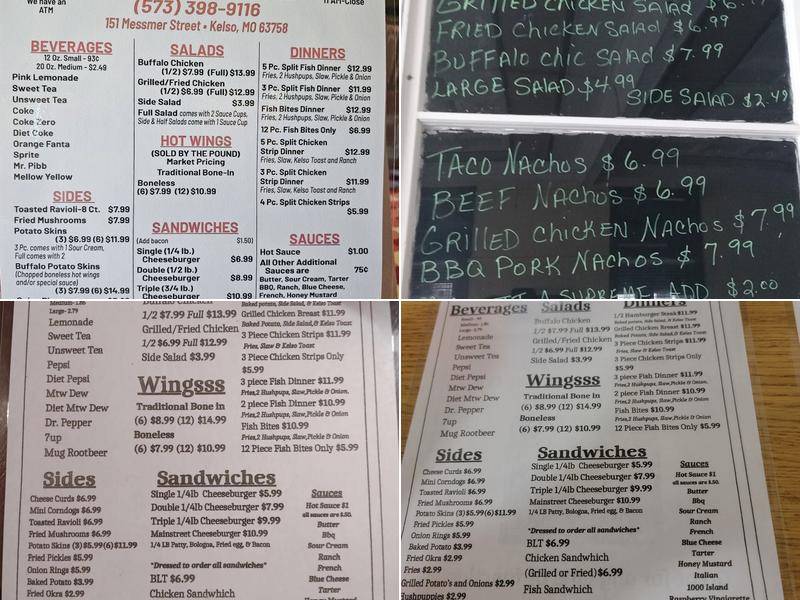 We have an
ATM
(573) 398-9116
11 AM-Close
151 Messmer Street • Kelso, MO 63758
BEVERAGES
12 Oz. Small - 93¢
20 Oz. Medium - $2.49
Pink Lemonade
Sweet Tea
Unsweet Tea
Coke
Coke Zero
Diet Coke
Orange Fanta
Sprite
Mr. Pibb
Mellow Yellow
SIDES
Toasted Ravioli-8 Ct. $7.99
Fried Mushrooms $7.99
Potato Skins
(3) $6.99 (6) $11.99
3 Pc. comes with 1 Sour Cream,
Full comes with 2
Buffalo Potato Skins
(Chopped boneless hot wings
and/or special sauce)
(3) $7.99 (6) $14.99
SALADS
Buffalo Chicken
(1/2) $7.99 (Full) $13.99
Grilled/Fried Chicken
(1/2) $6.99 (Full) $12.99
Side Salad $3.99
Full Salad comes with 2 Sauce Cups,
Side & Half Salads come with 1 Sauce Cup
HOT WINGS
(SOLD BY THE POUND)
Market Pricing
Traditional Bone-In
Boneless
(6) $7.99 (12) $10.99
SANDWICHES
(Add bacon $1.50)
Single (1/4 lb.)
Cheeseburger $6.99
Double (1/2 lb.)
Cheeseburger $8.99
Triple (3/4 lb.)
Cheeseburger $10.99
DINNERS
5 Pc. Split Fish Dinner $12.99
Fries, 2 Hushpups, Slaw, Pickle & Onion
3 Pc. Split Fish Dinner $11.99
Fries, 2 Hushpups, Slaw, Pickle & Onion
Fish Bites Dinner $12.99
Fries, 2 Hushpups, Slaw, Pickle & Onion
12 Pc. Fish Bites Only $6.99
5 Pc. Split Chicken
Strip Dinner $12.99
Fries, Slaw, Kelso Toast and Ranch
3 Pc. Split Chicken
Strip Dinner $11.99
Fries, Slaw, Kelso Toast and Ranch
4 Pc. Split Chicken Strips
$5.99
SAUCES
Hot Sauce $1.00
All Other Additional
Sauces are 75¢
Butter, Sour Cream, Tarter
BBQ, Ranch, Blue Cheese,
French, Honey Mustard
GRILLED CHICKEN SALAD $6.
FRIED CHICKEN SALAD $6.99
BUFFALO CHIC SALAD $7.99
LARGE SALAD $4.99
SIDE SALAD $2.49
TACO NACHOS $6.99
BEEF NACHOS $6.99
GRILLED CHICKEN NACHOS $7.99
BBQ PORK NACHOS $7.99
A SUPREME ADD $2.00
Medium- 1.86
Large- 2.79
Lemonade
Sweet Tea
Unsweet Tea
Pepsi
Diet Pepsi
Mtw Dew
Diet Mtw Dew
Dr. Pepper
7up
Mug Rootbeer
Sides
Cheese Curds $6.99
Mini Corndogs $6.99
Toasted Ravioli $6.99
Fried Mushrooms $6.99
Potato Skins (3)$5.99(6)$11.99
Fried Pickles $5.99
Onion Rings $5.99
Baked Potato $3.99
Fried Okra $2.99
Buffalo Chicken
1/2 $7.99 Full $13.99
Grilled/Fried Chicken
1/2 $6.99 Full $12.99
Side Salad $3.99
Wingsss
Traditional Bone in
(6) $8.99 (12) $14.99
Boneless
(6) $7.99 (12) $10.99
Baked potato, Side Salad,& Kelso Toast
Grilled Chicken Breast $11.99
Baked Potato, Side Salad,& Kelso Toast
3 Piece Chicken Strips $11.99
Fries, Slaw & Kelso Toast
3 Piece Chicken Strips Only
$5.99
3 piece Fish Dinner $11.99
Fries,2 Hushpups, Slaw,Pickle & Onion.
2 piece Fish Dinner $10.99
Fries,2 Hushpups, Slaw,Pickle & Onion
Fish Bites $10.99
Fries,2 Hushpups, Slaw,Pickle & Onion
12 Piece Fish Bites Only $5.99
Sandwiches
Single 1/4lb Cheeseburger $5.99
Double 1/4lb Cheeseburger $7.99
Triple 1/4lb Cheeseburger $9.99
Mainstreet Cheeseburger $10.99
1/4 LB Patty, Bologna, Fried egg, & Bacon
*Dressed to order all sandwiches*
BLT $6.99
Chicken Sandwhich
Sauces
Hot Sauce $1
all sauces are $.50.
Butter
Bbq
Sour Cream
Ranch
French
Blue Cheese
Tarter
Honey Mustard
Beverages
Small- .93
Medium- 1.86
Large- 2.79
Lemonade
Sweet Tea
Unsweet Tea
Pepsi
Diet Pepsi
Mtw Dew
Diet Mtw Dew
Dr. Pepper
7up
Mug Rootbeer
Sides
Cheese Curds $6.99
Mini Corndogs $6.99
Toasted Ravioli $6.99
Fried Mushrooms $6.99
Potato Skins (3)$5.99(6)$11.99
Fried Pickles $5.99
Onion Rings $5.99
Baked Potato $3.99
Fried Okra $2.99
Fries $2.99
Grilled Potato's and Onions $2.99
Hushpuppies $2.99
Salads
Buffalo Chicken
1/2 $7.99 Full $13.99
Grilled/Fried Chicken
1/2 $6.99 Full $12.99
Side Salad $3.99
Wingsss
Traditional Bone in
(6) $8.99 (12) $14.99
Boneless
(6) $7.99 (12) $10.99
Dinners
1/2 Hamburger Steak $11.99
Baked potato, Side Salad,& Kelso Toast
Grilled Chicken Breast $11.99
Baked Potato, Side Salad,& Kelso Toast
3 Piece Chicken Strips $11.99
Fries, Slaw & Kelso Toast
3 Piece Chicken Strips Only
$5.99
3 piece Fish Dinner $11.99
Fries,2 Hushpups, Slaw,Pickle & Onion.
2 piece Fish Dinner $10.99
Fries,2 Hushpups, Slaw,Pickle & Onion
Fish Bites $10.99
Fries,2 Hushpups, Slaw,Pickle & Onion
12 Piece Fish Bites Only $5.99
Sandwiches
Single 1/4lb Cheeseburger $5.99
Double 1/4lb Cheeseburger $7.99
Triple 1/4lb Cheeseburger $9.99
Mainstreet Cheeseburger $10.99
1/4 LB Patty, Bologna, Fried egg, & Bacon
*Dressed to order all sandwiches*
BLT $6.99
Chicken Sandwhich
(Grilled or Fried)$6.99
Fish Sandwhich
Sauces
Hot Sauce $1
all sauces are $.50.
Butter
Bbq
Sour Cream
Ranch
French
Blue Cheese
Tarter
Honey Mustard
Italian
1000 Island
Raspberry Vinaigarette